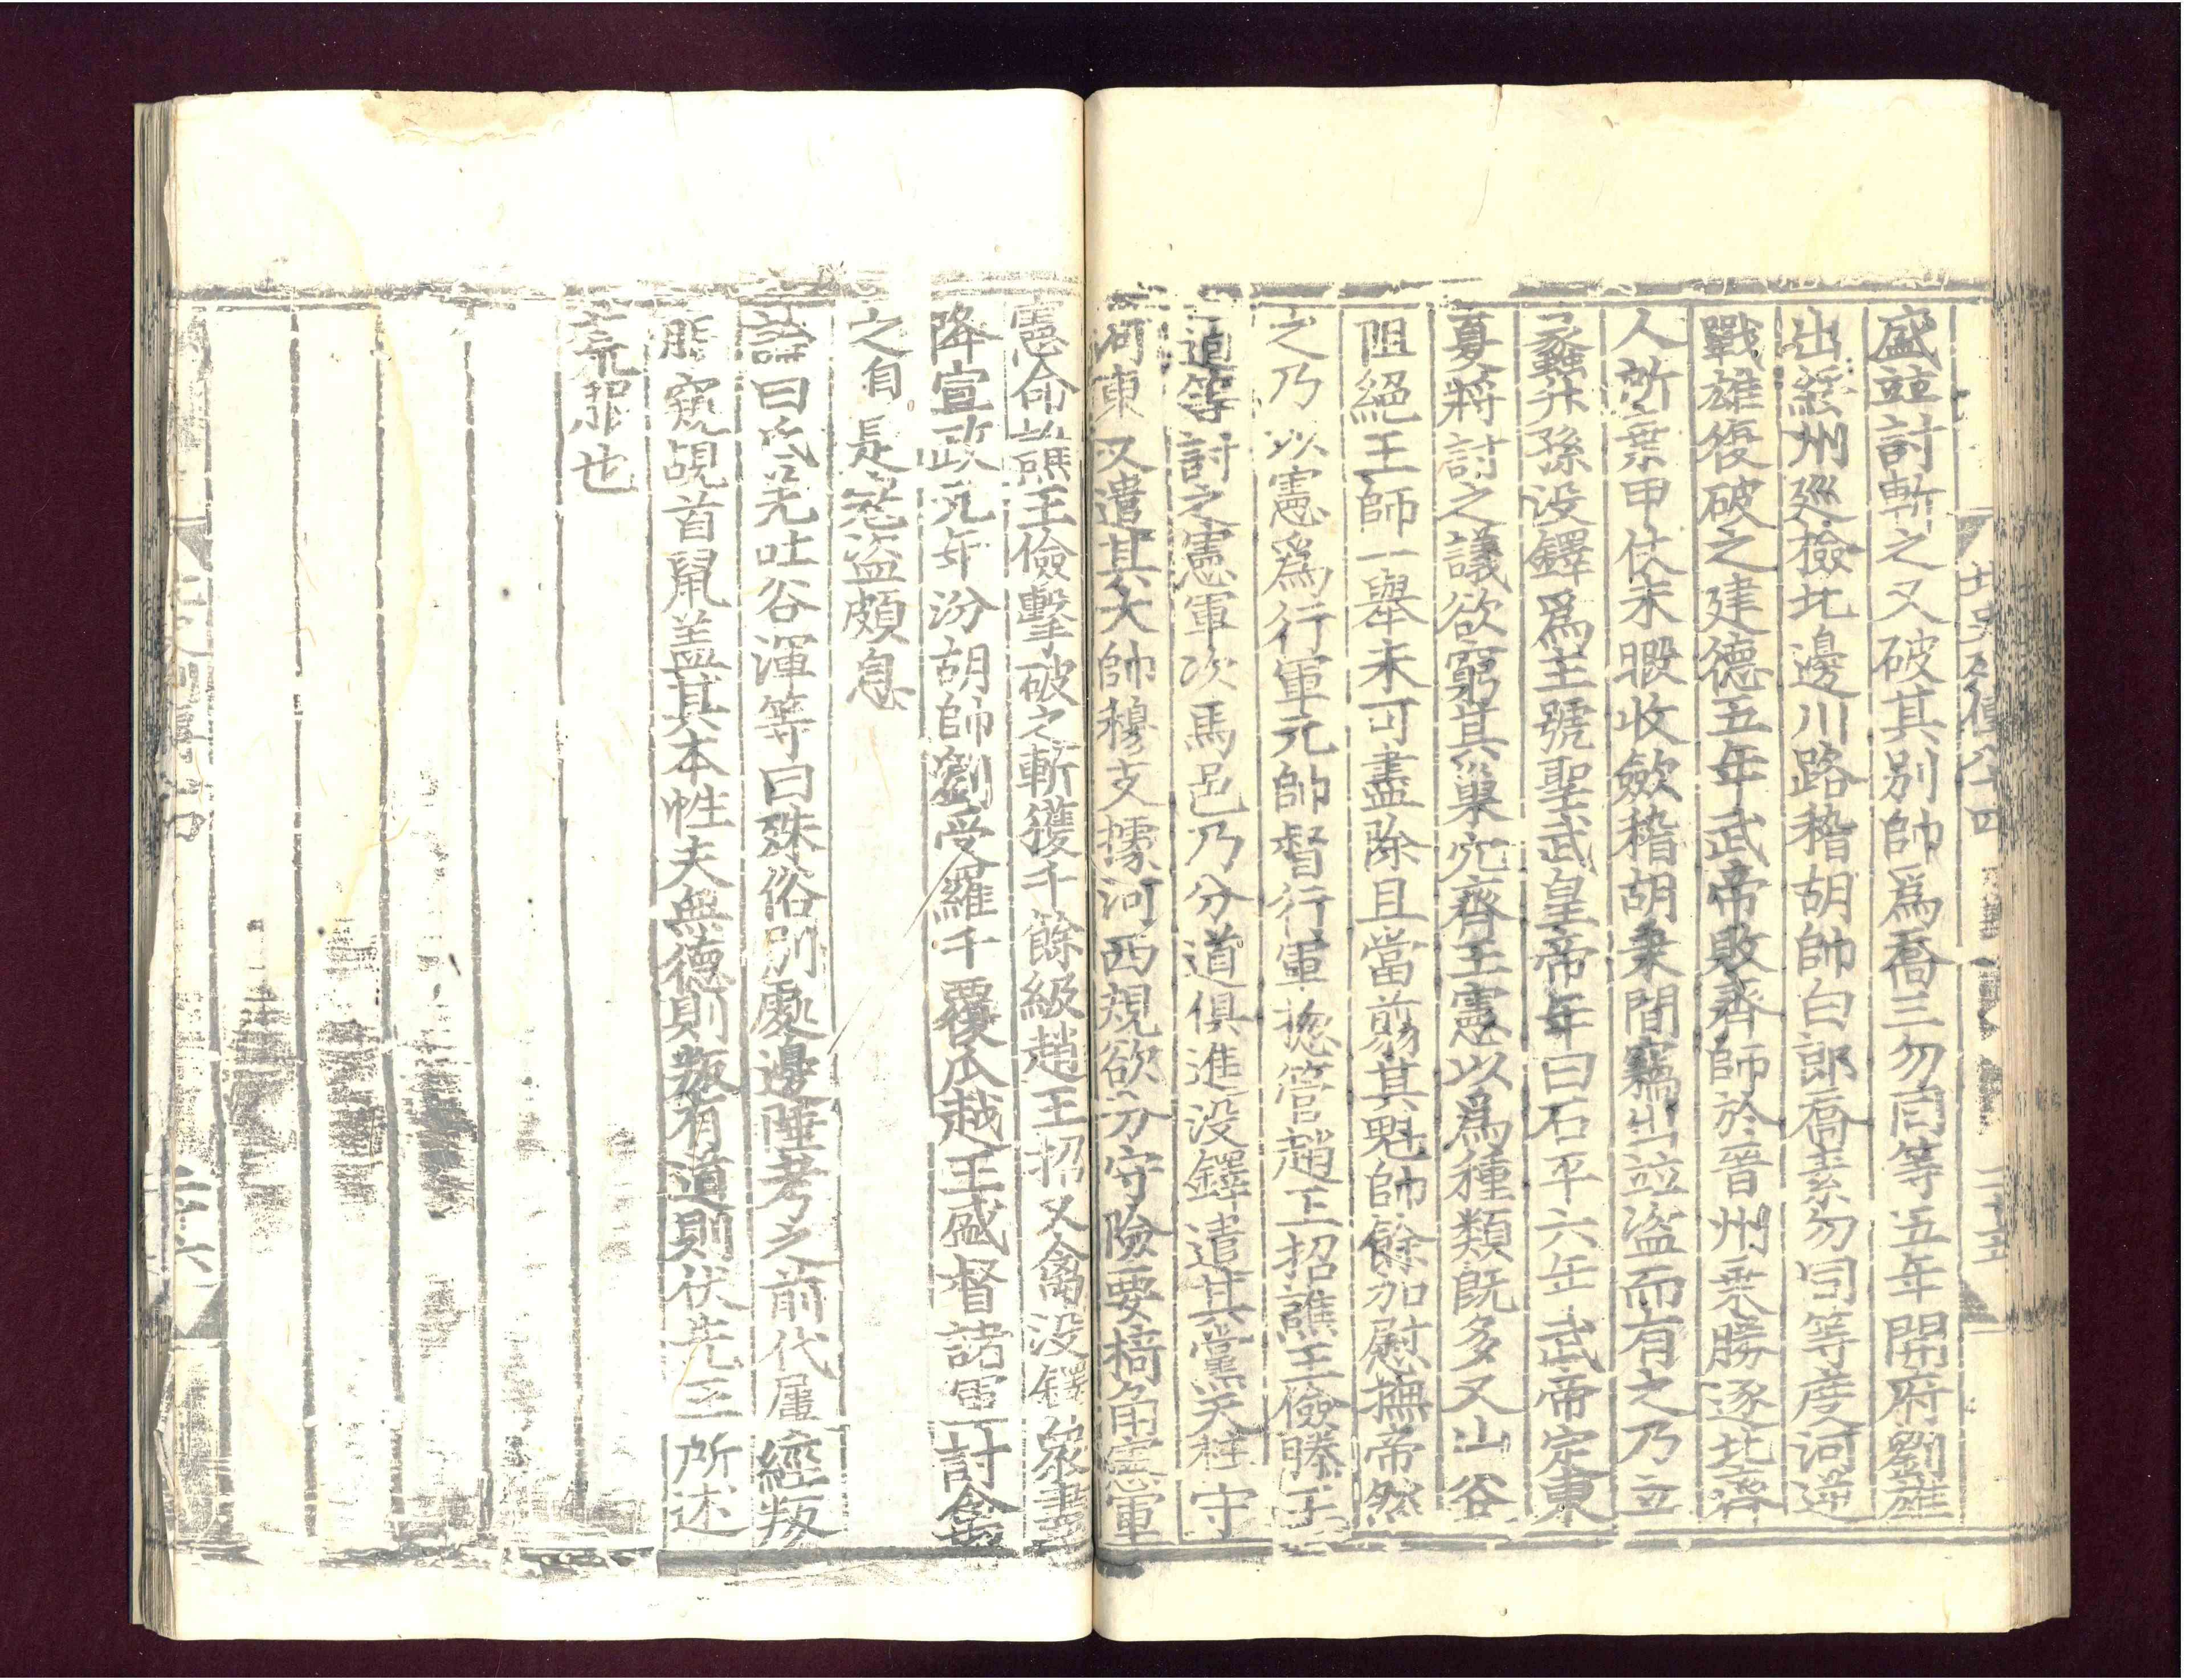 盛竝討斬之又破其別帥爲喬三勿同等五年開府劉雄
出綏州廵檢北邊川路稽胡帥白郎喬素勿同等度河逆
戰雄復破之建德五年武帝敗齊師於晋州乗勝逐北齊
人所棄甲仗未暇收斂稽胡乗間竊出竝盜而有之乃立
蠡升孫没鐸爲主號聖武皇帝年曰石平六年武帝定東
夏將討之議欲窮其巢穴齊王憲以爲種類旣多又山谷
阻絕王師一舉未可盡除且當剪其魁帥餘加慰撫帝然
之乃以憲爲行軍元帥督行軍揔管趙王招譙王儉滕王
逌等討之憲軍次馬邑乃分道俱進没鐸遣其黨天柱守
河東又遣其大帥穆支據河西規欲分守險要掎角憲軍
憲命譙王儉擊破之斬獲千餘級趙王招又禽没鐸衆盡
降宣政元年汾胡帥劉受羅千覆反越王盛督諸軍討禽
之自是寇盜頗息
論曰氐羌吐谷渾等曰殊俗別處邊陲考之前代屢經叛
服窺覘首鼠盖其本性夫無德則叛有道則伏先王所述
荒服也
北史列傳八十四 二十五